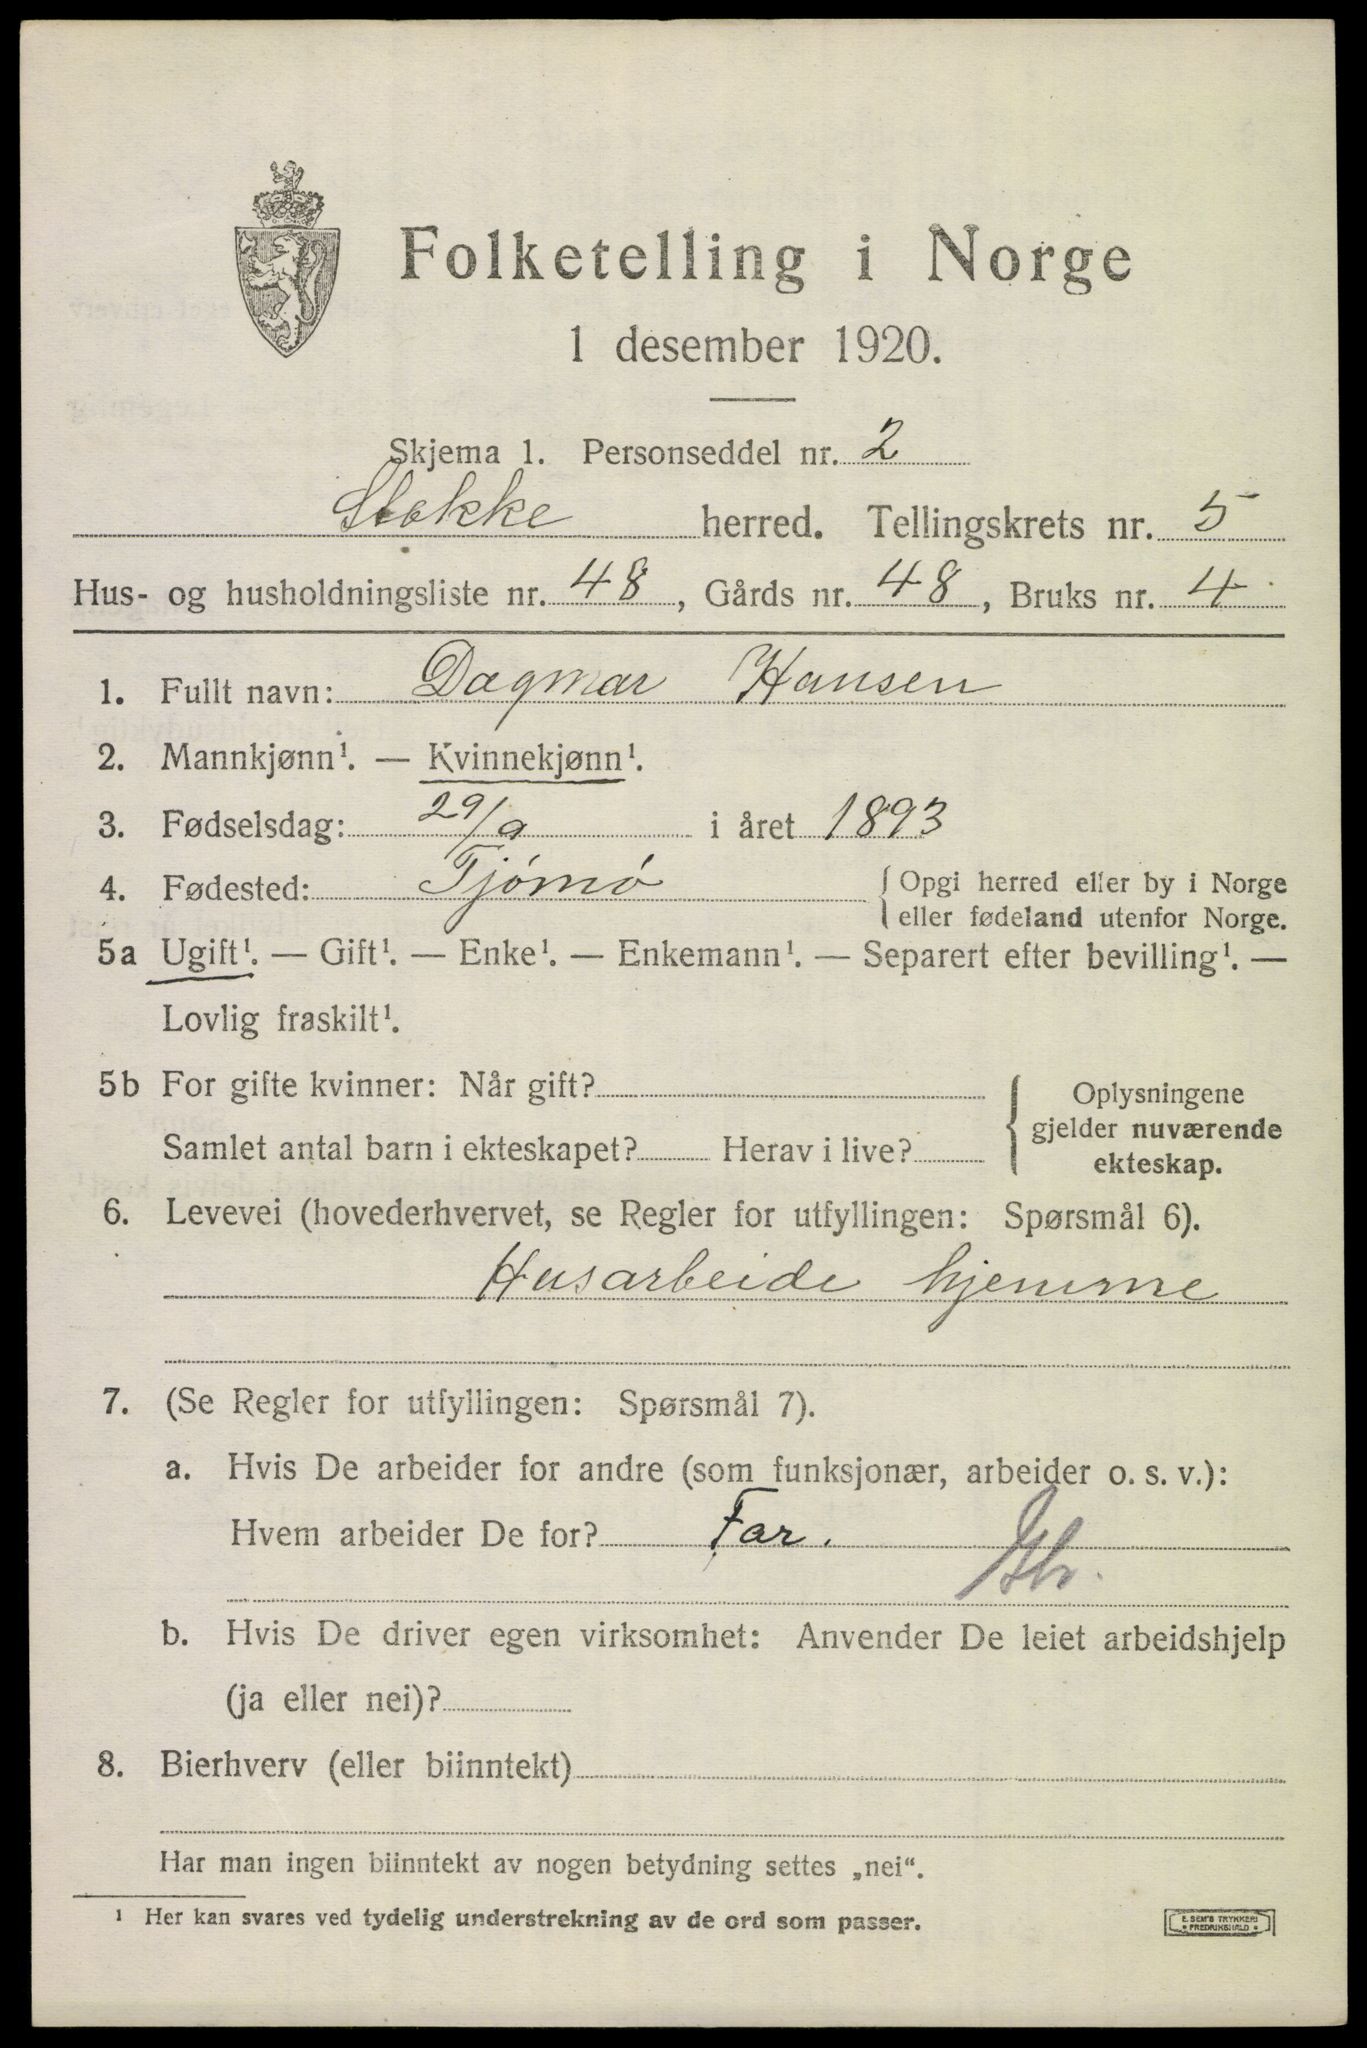 Folketelling i Norge
1 desember 1920.
Skjema 1. Personseddel nr. 2
Stokke herred. Tellingskrets nr. 5
Hus- og husholdningsliste nr. 48, Gårds nr. 48, Bruks nr. 4
1. Fullt navn: Dagmar Hansen
2. Mannkjønn¹. — Kvinnekjønn¹.
3. Fødselsdag: 29/9 i året 1893
4. Fødested: Tjømø { Opgi herred eller by i Norge
eller fødeland utenfor Norge.
5a Ugift¹. — Gift¹. — Enke¹. — Enkemann¹. — Separert efter bevilling¹. —
Lovlig fraskilt¹.
5b For gifte kvinner: Når gift?
Samlet antal barn i ekteskapet? Herav i live?
Oplysningene
gjelder nuværende
ekteskap.
6. Levevei (hovederhvervet, se Regler for utfyllingen: Spørsmål 6).
Husarbeide hjemme
7. (Se Regler for utfyllingen: Spørsmål 7).
a. Hvis De arbeider for andre (som funksjonær, arbeider o. s. v.):
Hvem arbeider De for? Far.
b. Hvis De driver egen virksomhet: Anvender De leiet arbeidshjelp
(ja eller nei)?
8. Bierhverv (eller biinntekt)
Har man ingen biinntekt av nogen betydning settes „nei“.
¹ Her kan svares ved tydelig understrekning av de ord som passer.
E. SEM'S TRYKKERI
FREDRIKSHALD